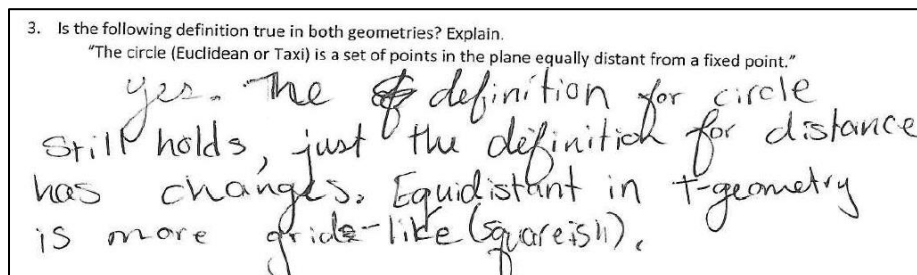 3. Is the following definition true in both geometries? Explain.
"The circle (Euclidean or Taxi) is a set of points in the plane equally distant from a fixed point."
yes. The definition for circle
still holds, just the definition for distance
has changes. Equidistant in t-geometry
is more gride-like (squareish).